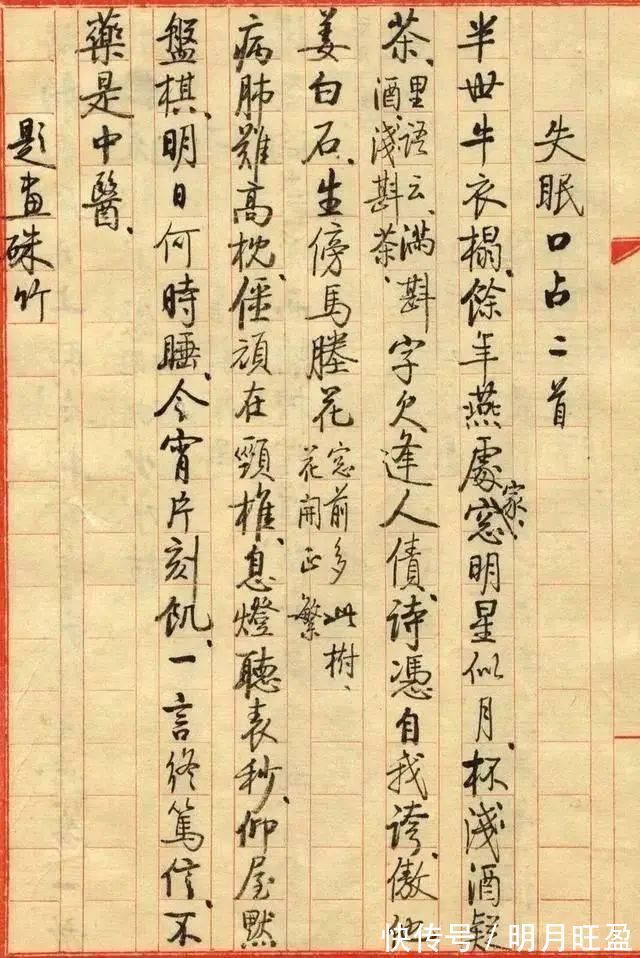 失眠口占二首
半世牛衣榻、餘年燕處家、窓明星似月、杯淺酒疑
茶、里語云、滿斟酒、淺斟茶、字欠逢人債、詩憑自我誇、傲他
姜白石、生傍馬塍花窓前多此樹、花開正繁
病肺難高枕、僵頑在頸椎、息燈聽表秒、仰屋默
盤棋、明日何時睡、今宵片刻飢、一言終篤信、不
藥是中醫、
題畫硃竹
快传号/明月旺盈